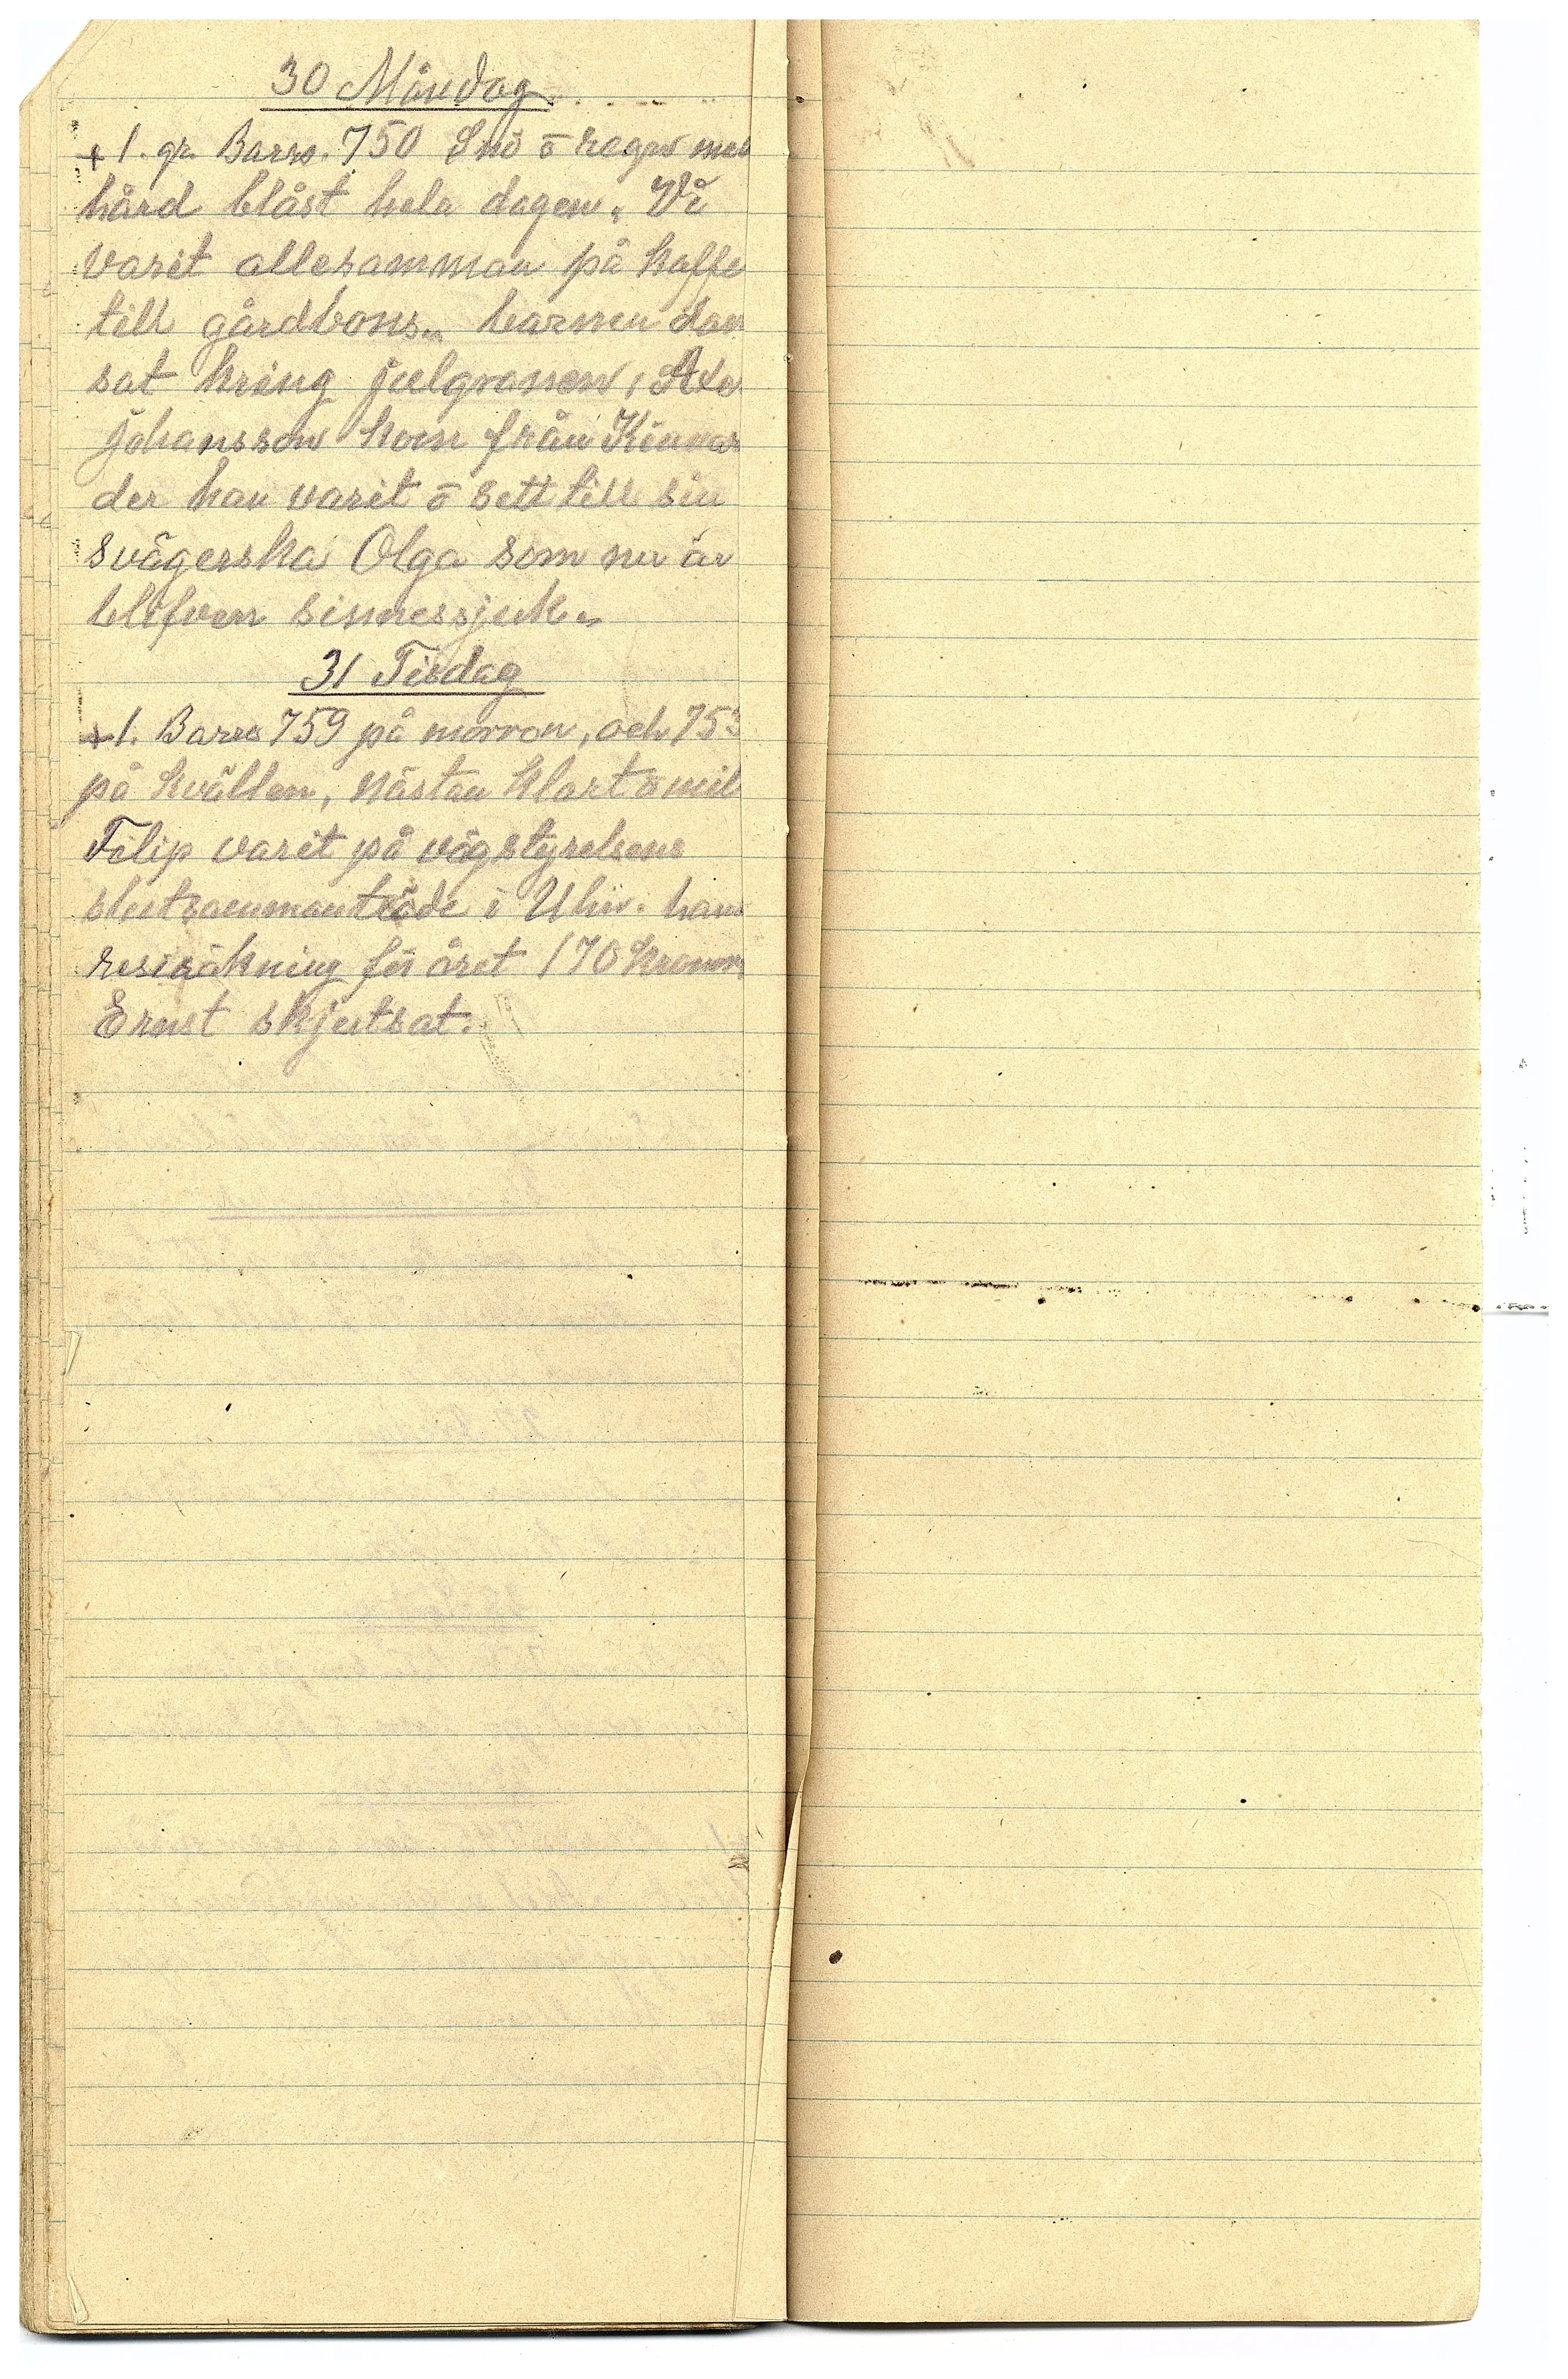 30 Måndag
+1. gr. Baro. 750 Snö ō regn med
hård blåst hela dagen. Vi
varit allesamman på kaffe
till gårdbons. barnen dan
sat kring julgranen,
Johansson kom från
der han varit ō sett till sin
svägerska Olga som nu är
blifven sinnessjuk.
31 Tisdag
+1. Baro 759 på morron, och 753
på kvällen, nästan klart ō mil
Filip varit på vägstyrelsens
slutsammanträde i Ulr. hans
resräkning för året 170 kronor
Ernst skjutsat.